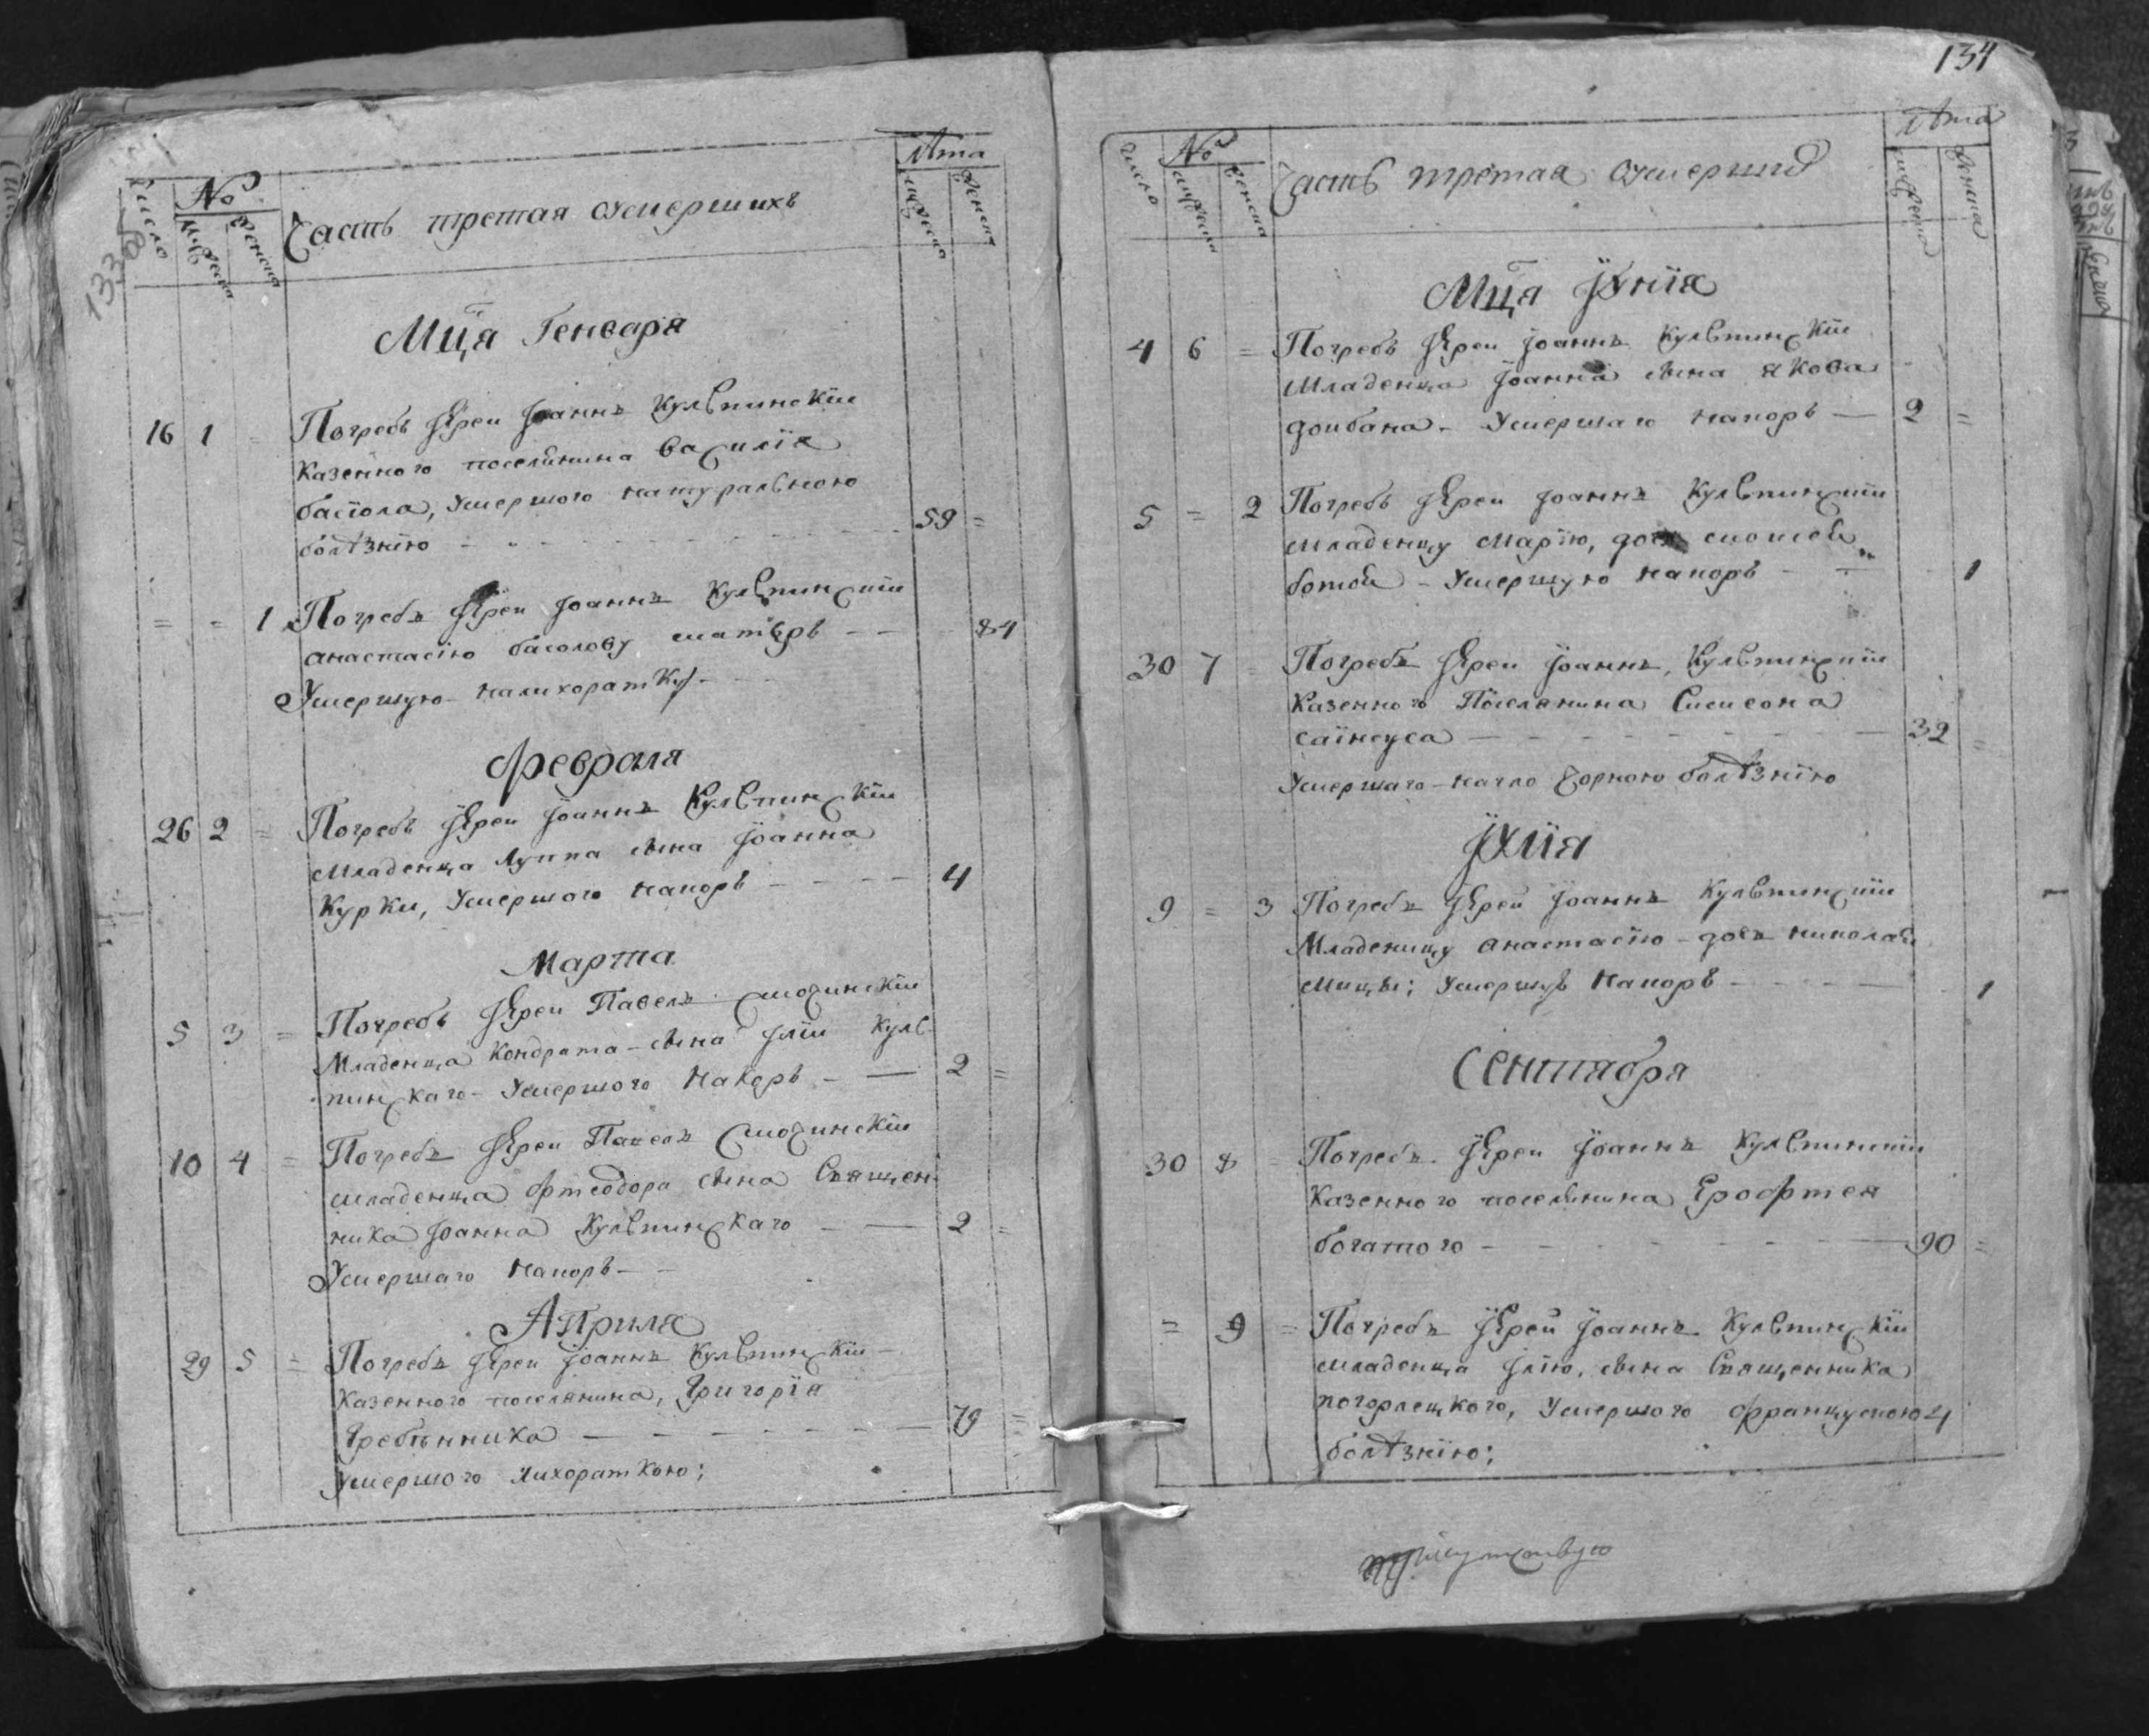 133об
Число
№
Мужеска
Женска
Часть третая умершихъ
Лѣта
Мужеска
Женска
Мц̃а Генваря
16 1 = Погребъ Іѥреи Іоаннъ Кульпинскїи
казенного поселянина Василїя
басїола, умершого натуральною
болѣзнїю - - - 59 =
= = 1 Погребъ Іѥреи Іоаннъ Кульпинскїи
Анастасїю басолову матѣръ - - 84
Умершую на лихоратку -
Февраля
26 2 = Погребъ Іѥреи Іоаннъ Кульпинскїи
младенца Луппа сына Іоанна
Курки, Умершого на поръ - - - - 4
Марта
5 3 = Погребъ Іѥреи Павелъ Смочинскїи
Младенца Кондрата - сына Іліи Куль-
пинскаго - Умершого на коръ - — 2 =
10 4 = Погребъ Іѥреи Павелъ Смочинскїи
младенца Фтеодора сына Священ-
ника Іоанна Кульпинскаго - — 2 =
Умершаго на поръ - -
Априля
29 5 = Погребъ Іѥреи Іоаннъ Кульпинскїи -
казенного поселянина, Григорїя
Гребѣнника — - - - - - 79 =
Умершого лихораткою;
134
Число
№
Мужеска
Женска
Часть третая умерших
Лѣта
Мужеска
Женска
Мц̃а Іѹнїя
4 6 = Погребъ Іѥреи Іоаннъ Кульпинскїи
младенца Іоанна сына Якова
доибана - Умершаго на поръ — 2 =
5 = 2 Погребъ Іѥреи Іоаннъ Кульпинскїи
младенцу Марїю, дочь
ботои - Умершую на поръ - — 1
30 7 = Погребъ Іѥреи Іоаннъ, Кульпинскїи
казенного Поселянина Симеона
саїнсуса — - - - - - — 32 =
Умершаго - нагло чорною болѣзнїю
Іѹлїя
9 = 3 Погребъ Іѥреи Іоаннъ Кульпинскїи
Младеницу Анастасїю - дочь николая
Мицы; Умершую на поръ - - - - 1
Сентября
30 8 = Погребъ Іѥреи Іоаннъ Кульпинскїи
казенного поселянина Ерофтея
богатого - - - - - - — 90 =
= 9 = Погребъ Іѥреи Іоаннъ Кульпинскїи
младенца Ілїю, сына Священника
погорлецкого, Умершого францускою 4
болѣзнїю;